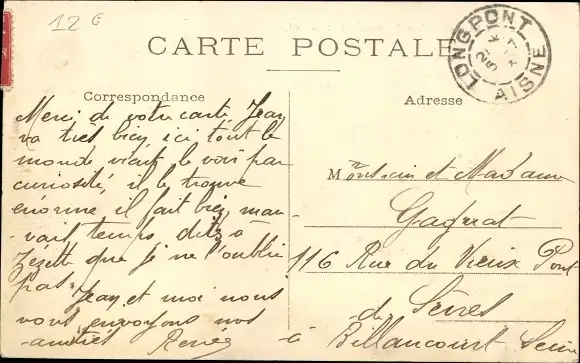 12 €
CARTE POSTALE
LONGPONT
AISNE
Correspondance
Adresse
Merci de votre carte, Jean
va très bien, ici tout le
monde vient le voir par
curiosité, il le trouve
énorme il fait bien mau-
-vais temps dites à
Zézette que je ne l'oublie
pas.
Jean et moi nous
vous envoyons nos
amitiés Renée
Monsieur et Madame
116 Rue du Vieux Pont
de Sèvres
à Billancourt Seine